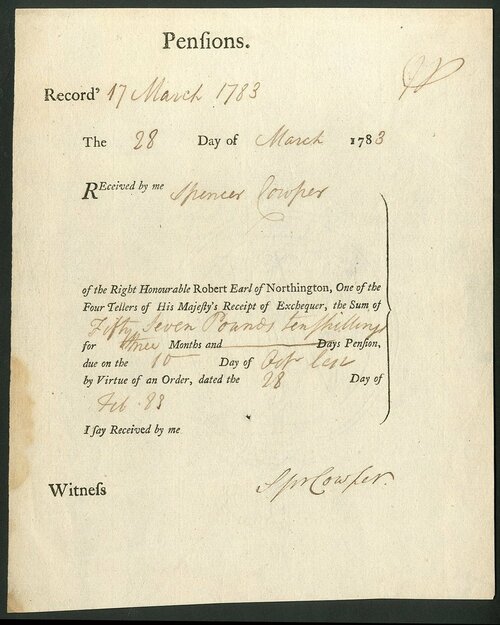 Penſions.
Record' 17 March 1783
The 28 Day of March 1783
REceived by me Spencer Cowper
of the Right Honourable Robert Earl of Northington, One of the
Four Tellers of His Majeſty's Receipt of Exchequer, the Sum of
Fifty Seven Pounds ten Shillings
for three Months and Days Penſion,
due on the 10 Day of Octr last
by Virtue of an Order, dated the 28 Day of
Feb. 83
I ſay Received by me
Witneſs Spr Cowper.